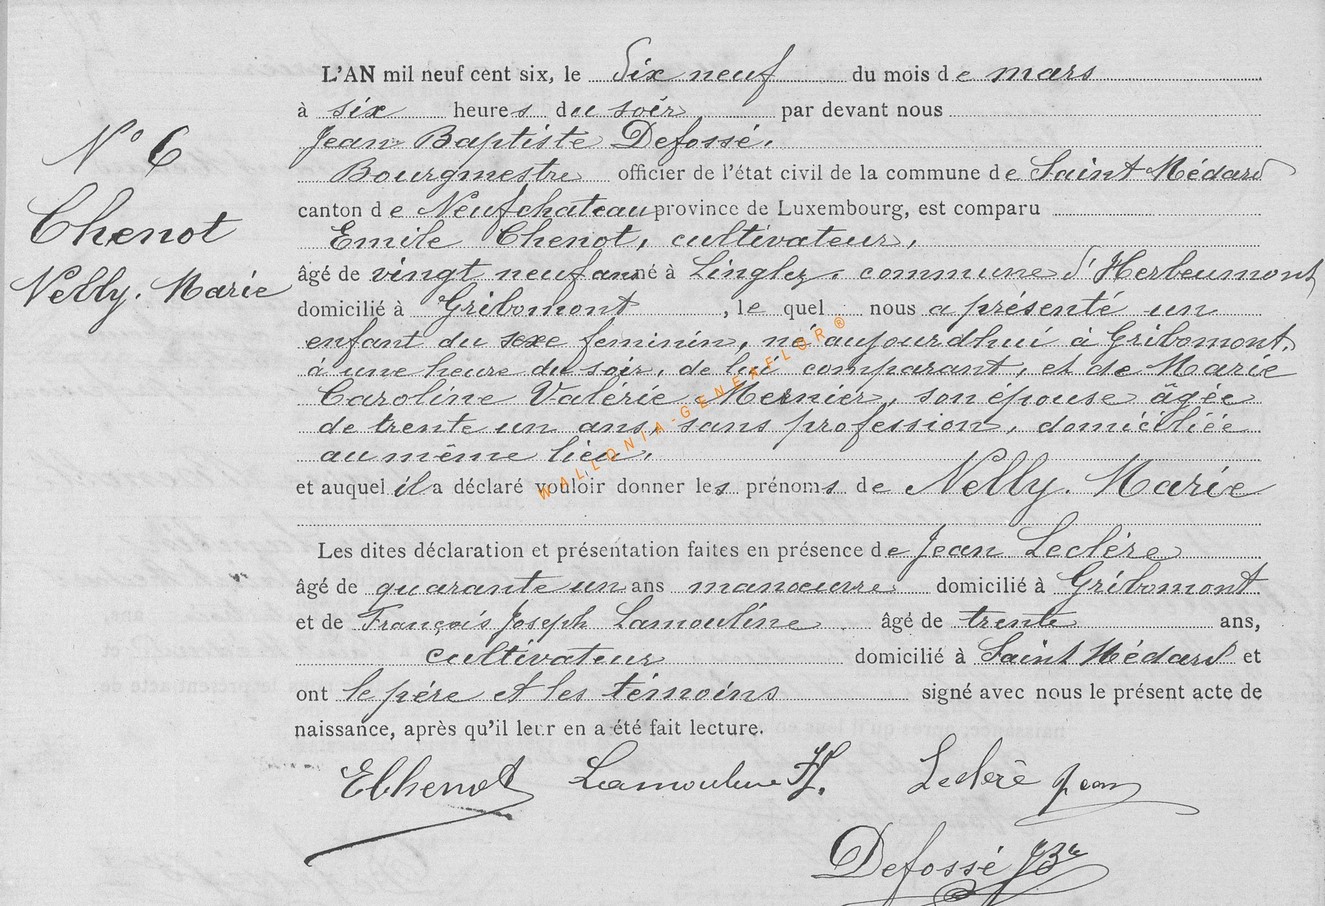 L'AN mil neuf cent six, le Six neuf du mois de mars
à six heures du soir, par devant nous
Jean Baptiste Defossé,
Bourgmestre officier de l'état civil de la commune de Saint Médard
canton de Neufchateau province de Luxembourg, est comparu
Emile Chenot, cultivateur,
âgé de vingt neuf ans né à Linglez, commune d'Herbeumont
domicilié à Gribomont, le quel nous a présenté un
enfant du sexe feminin, né aujourdhui à Gribomont,
à une heure du soir, de lui comparant, et de Marie
Caroline Valérie Mernier, son épouse âgée
de trente un ans, sans profession, domiciliée
au même lieu,
et auquel il a déclaré vouloir donner les prénoms de Nelly, Marie
Les dites déclaration et présentation faites en présence de Jean Leclére
âgé de quarante un ans manœuvre domicilié à Gribomont
et de François Joseph Lamouline âgé de trente ans,
cultivateur domicilié à Saint Médard et
ont le pére et les témoins signé avec nous le présent acte de
naissance, après qu'il leur en a été fait lecture.
EChenot Lamouline FJ. Leclérè Jean
Defossé JBte
N° 6
Chenot
Nelly, Marie
WALLONIA-GENEXELOR ®